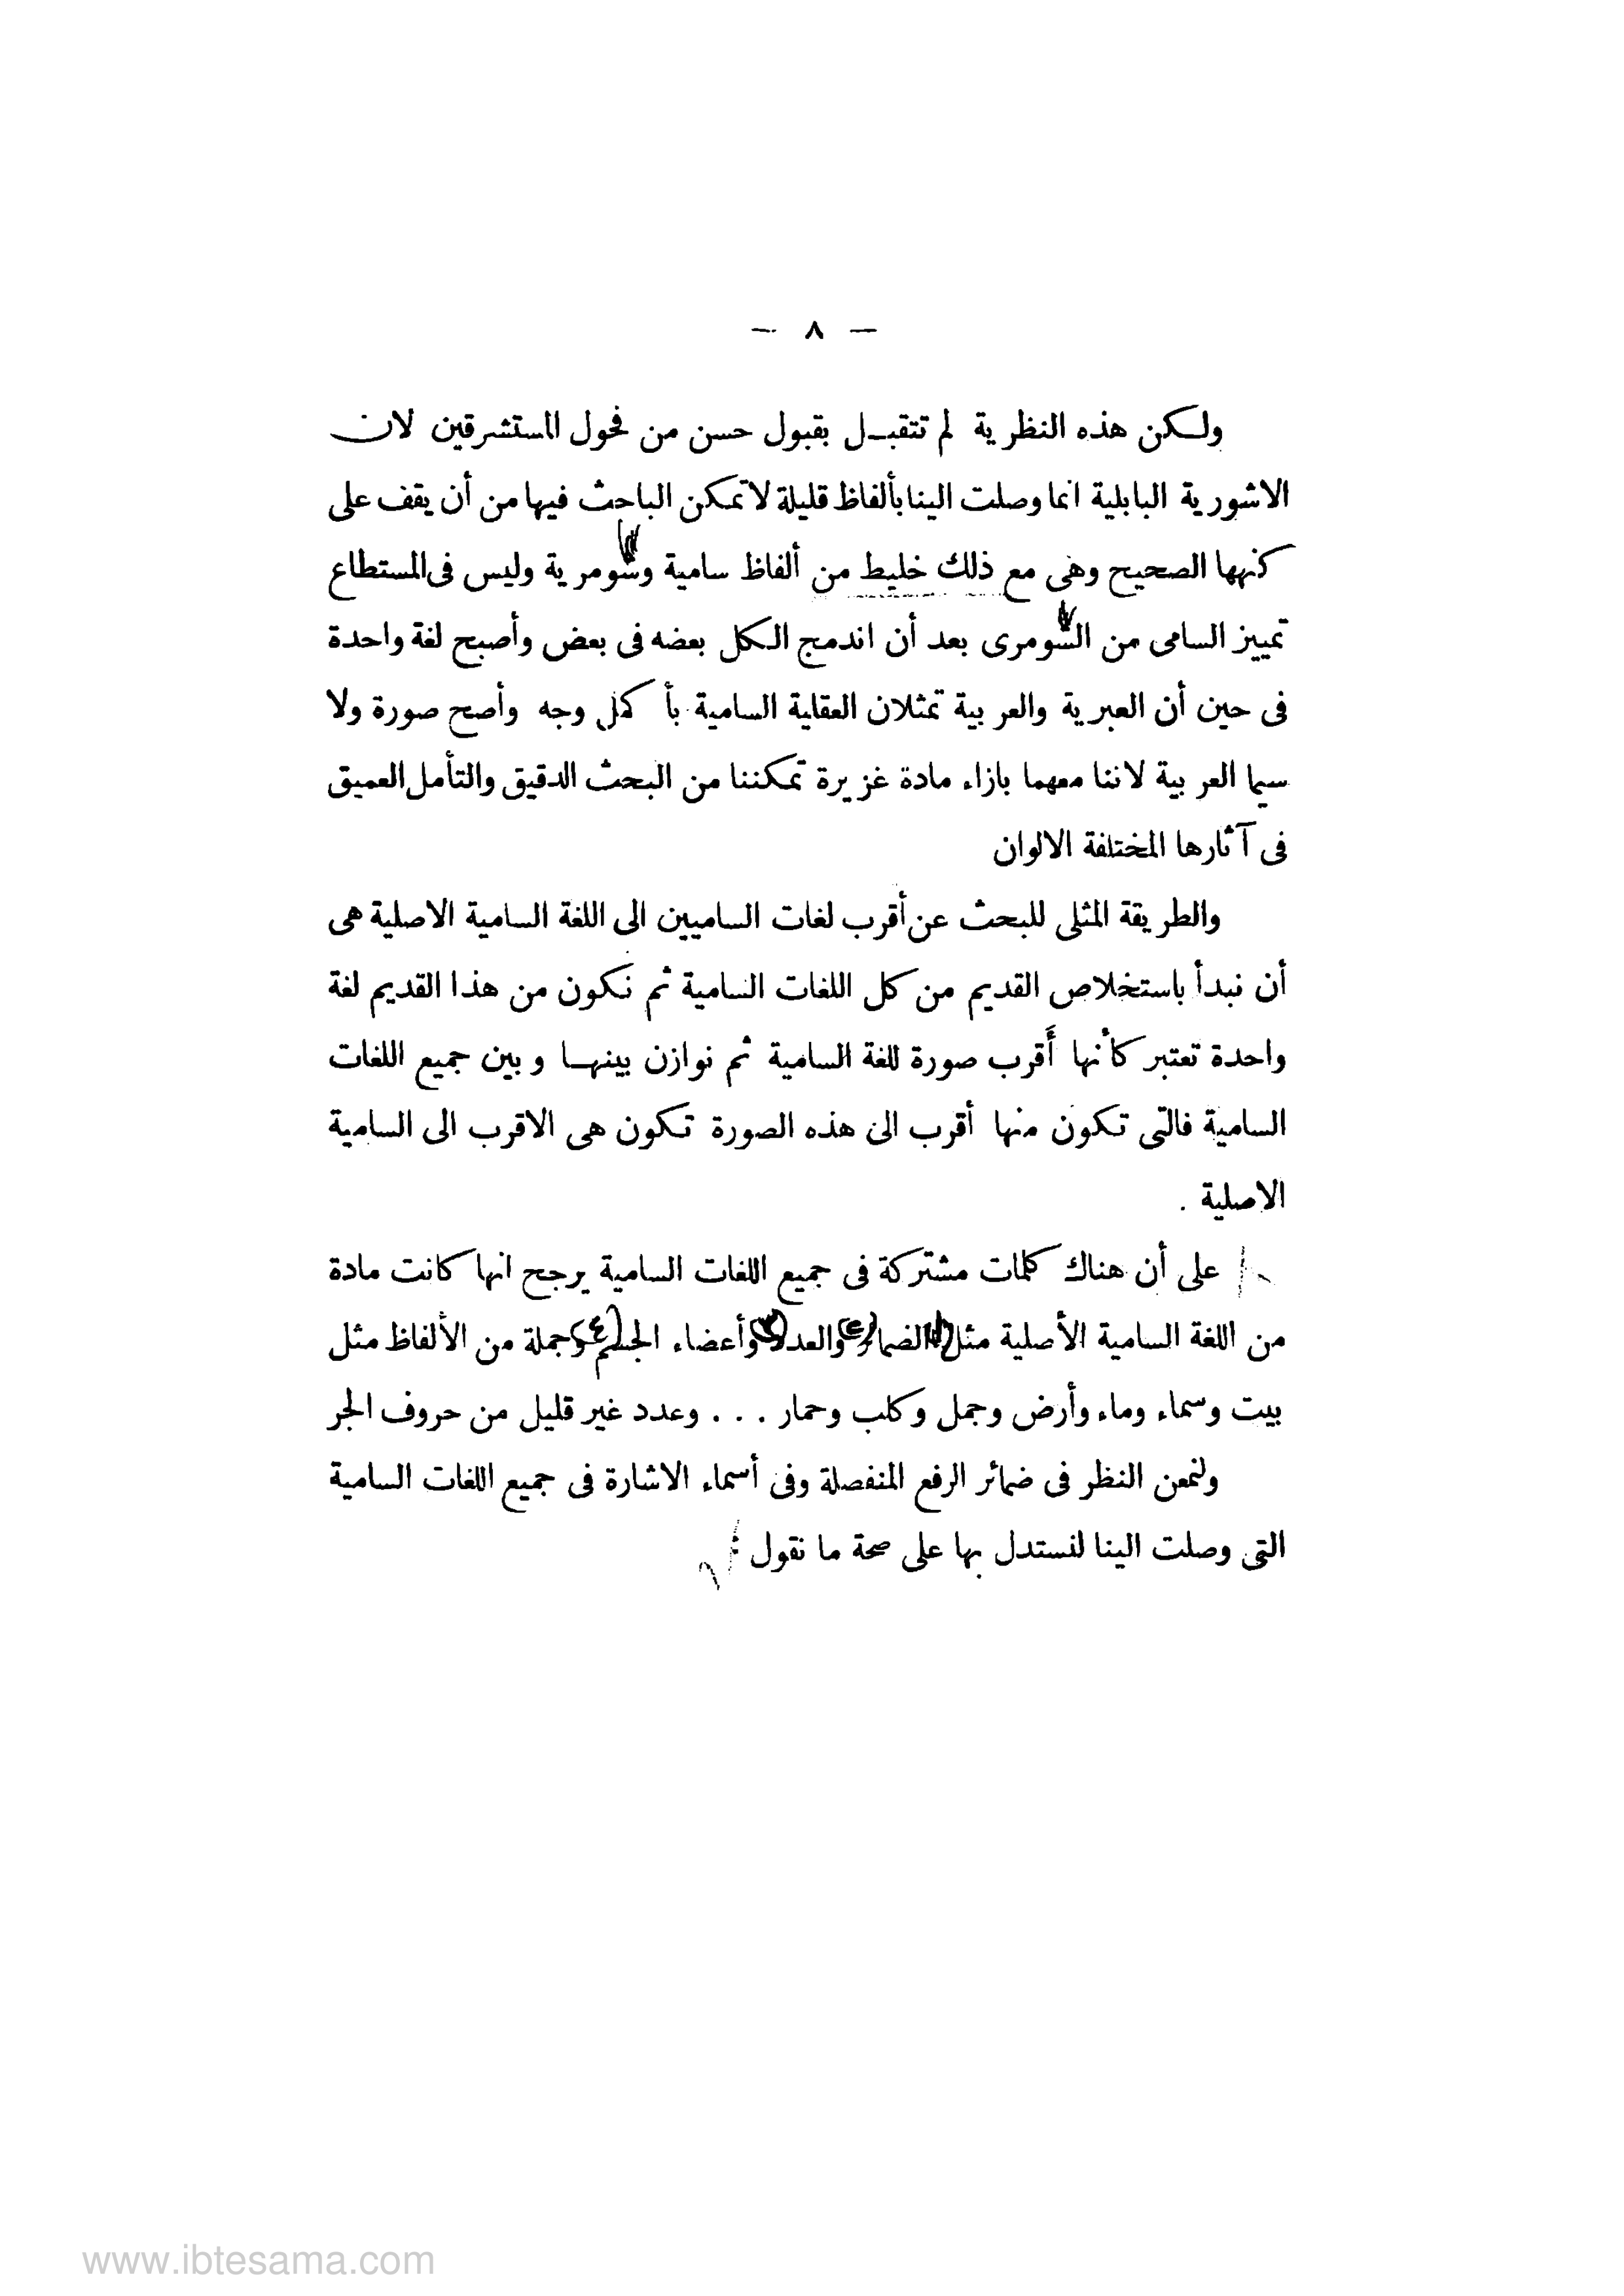 — ٨ —
ولكن هذه النظرية لم تتقبل بقبول حسن من فحول المستشرقين لان
الاشورية البابلية انما وصلت الينا بألفاظ قليلة لا تمكن الباحث فيها من أن يقف على
كنهها الصحيح وهى مع ذلك خليط من ألفاظ سامية وشومرية وليس فى المستطاع
تمييز السامى من الشومرى بعد أن اندمج الكل بعضه فى بعض وأصبح لغة واحدة
فى حين أن العبرية والعربية تمثلان العقلية السامية بأكمل وجه وأصح صورة ولا
سيما العربية لاننا معهما بازاء مادة غزيرة تمكننا من البحث الدقيق والتأمل العميق
فى آثارها المختلفة الالوان
والطريقة المثلى للبحث عن أقرب لغات الساميين الى اللغة السامية الاصلية هى
أن نبدأ باستخلاص القديم من كل اللغات السامية ثم نكون من هذا القديم لغة
واحدة تعتبر كأنها أقرب صورة للغة السامية ثم نوازن بينها وبين جميع اللغات
السامية فالتى تكون منها أقرب الى هذه الصورة تكون هى الاقرب الى السامية
الاصلية .
على أن هناك كلمات مشتركة فى جميع اللغات السامية يرجح انها كانت مادة
من اللغة السامية الأصلية مثل (١) الضمائر (٢) والعدد (٣) وأعضاء الجسم (٤) وجملة من الألفاظ مثل
بيت وسماء وماء وأرض وجمل وكلب وحمار . . . وعدد غير قليل من حروف الجر
ولنمعن النظر فى ضمائر الرفع المنفصلة وفى أسماء الاشارة فى جميع اللغات السامية
التى وصلت الينا لنستدل بها على صحة ما نقول :
www.ibtesama.com